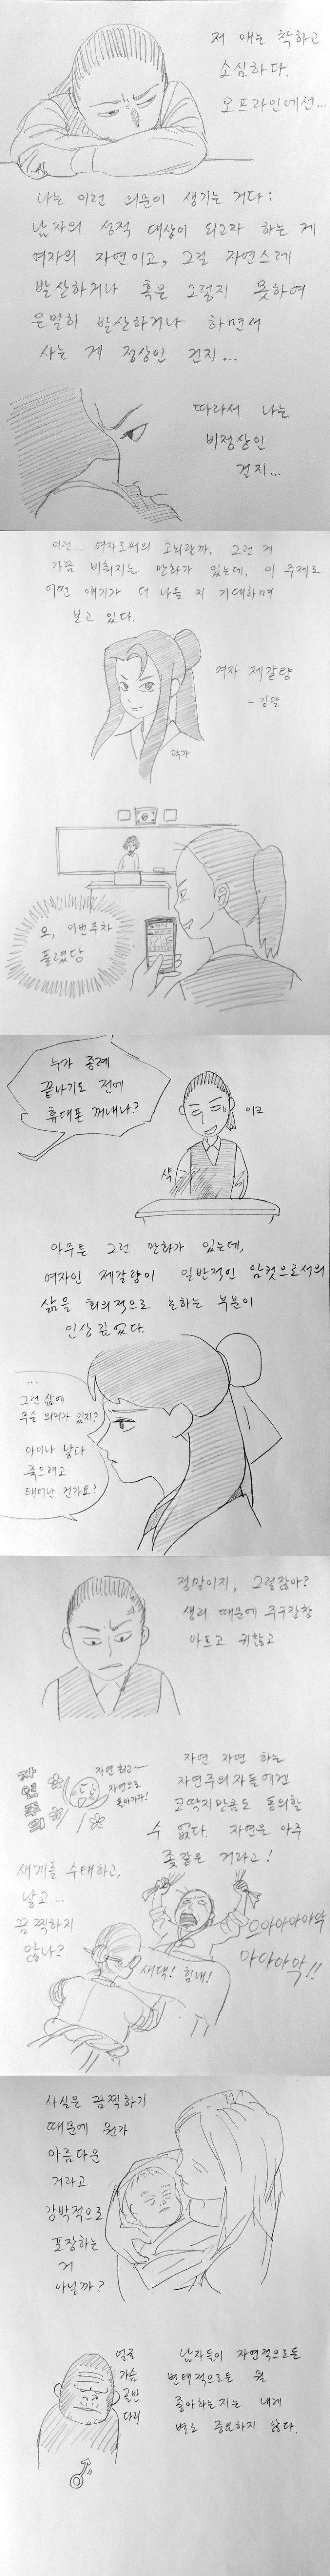 저 애는 착하고
소심하다.
오프라인에선...
나는 이런 의문이 생기는 거다:
남자의 성적 대상이 되고자 하는 게
여자의 자연이고, 그걸 자연스레
발산하거나 혹은 그렇지 못하여
은밀히 발산하거나 하면서
사는 게 정상인 건지...
따라서 나는
비정상인
건지...
이런... 여자로써의 고뇌랄까, 그런 게
가끔 비춰지는 만화가 있는데, 이 주제로
어떤 얘기가 더 나올 지 기대하며
보고 있다.
여자 제갈량
-김달
오, 이번주차
올렸당
누가 종례
끝나기도 전에
휴대폰 꺼내나?
이크
슥
아무튼 그런 만화가 있는데,
여자인 제갈량이 일반적인 암컷으로서의
삶을 회의적으로 논하는 부분이
인상 깊었다.
...
그런 삶에
무슨 의미가 있지?
아이나 낳다
죽으려고
태어난 건가요?
정말이지, 그렇잖아?
생리 때문에 주구장창
아프고 귀찮고
자연주의
자연 최고~
자연으로
돌아가자!
자연 자연 하는
자연주의자들에겐
코딱지만큼도 동의할
수 없다. 자연은 아주
좆같은 거라고!
새끼를 수태하고,
낳고...
끔찍하지
않나?
으아아아아악
아아아악!!
새댁! 힘내!
사실은 끔찍하기
때문에 뭔가
아름다운
거라고
강박적으로
포장하는
거
아닐까?
얼굴
가슴
골반
다리
남자들이 자연적으로든
변태적으로든 뭘
좋아하는지는 내게
별로 중요하지 않다.